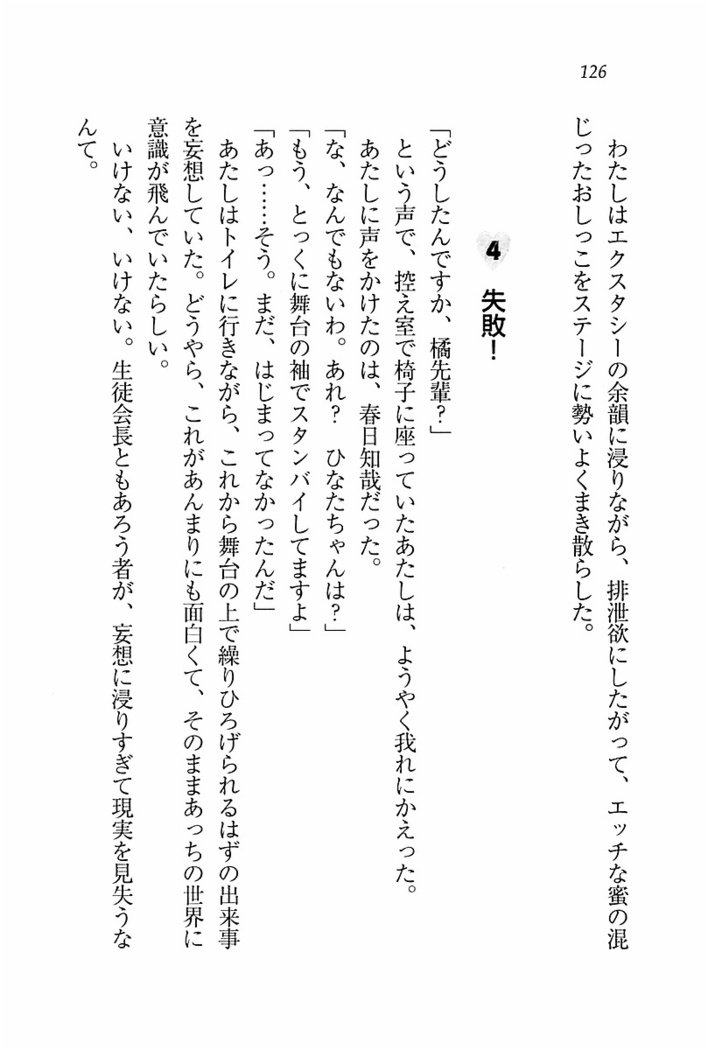 126
4 失敗！
「どうしたんですか、橘先輩？」
という声で、控え室で椅子に座っていたあたしは、ようやく我れにかえった。
あたしに声をかけたのは、春日知哉だった。
「な、なんでもないわ。あれ？　ひなたちゃんは？」
「もう、とっくに舞台の袖でスタンバイしてますよ」
「あっ……そう。まだ、はじまってなかったんだ」
あたしはトイレに行きながら、これから舞台の上で繰りひろげられるはずの出来事
を妄想していた。どうやら、これがあんまりにも面白くて、そのままあっちの世界に
意識が飛んでいたらしい。
いけない、いけない。生徒会長ともあろう者が、妄想に浸りすぎて現実を見失うな
んて。